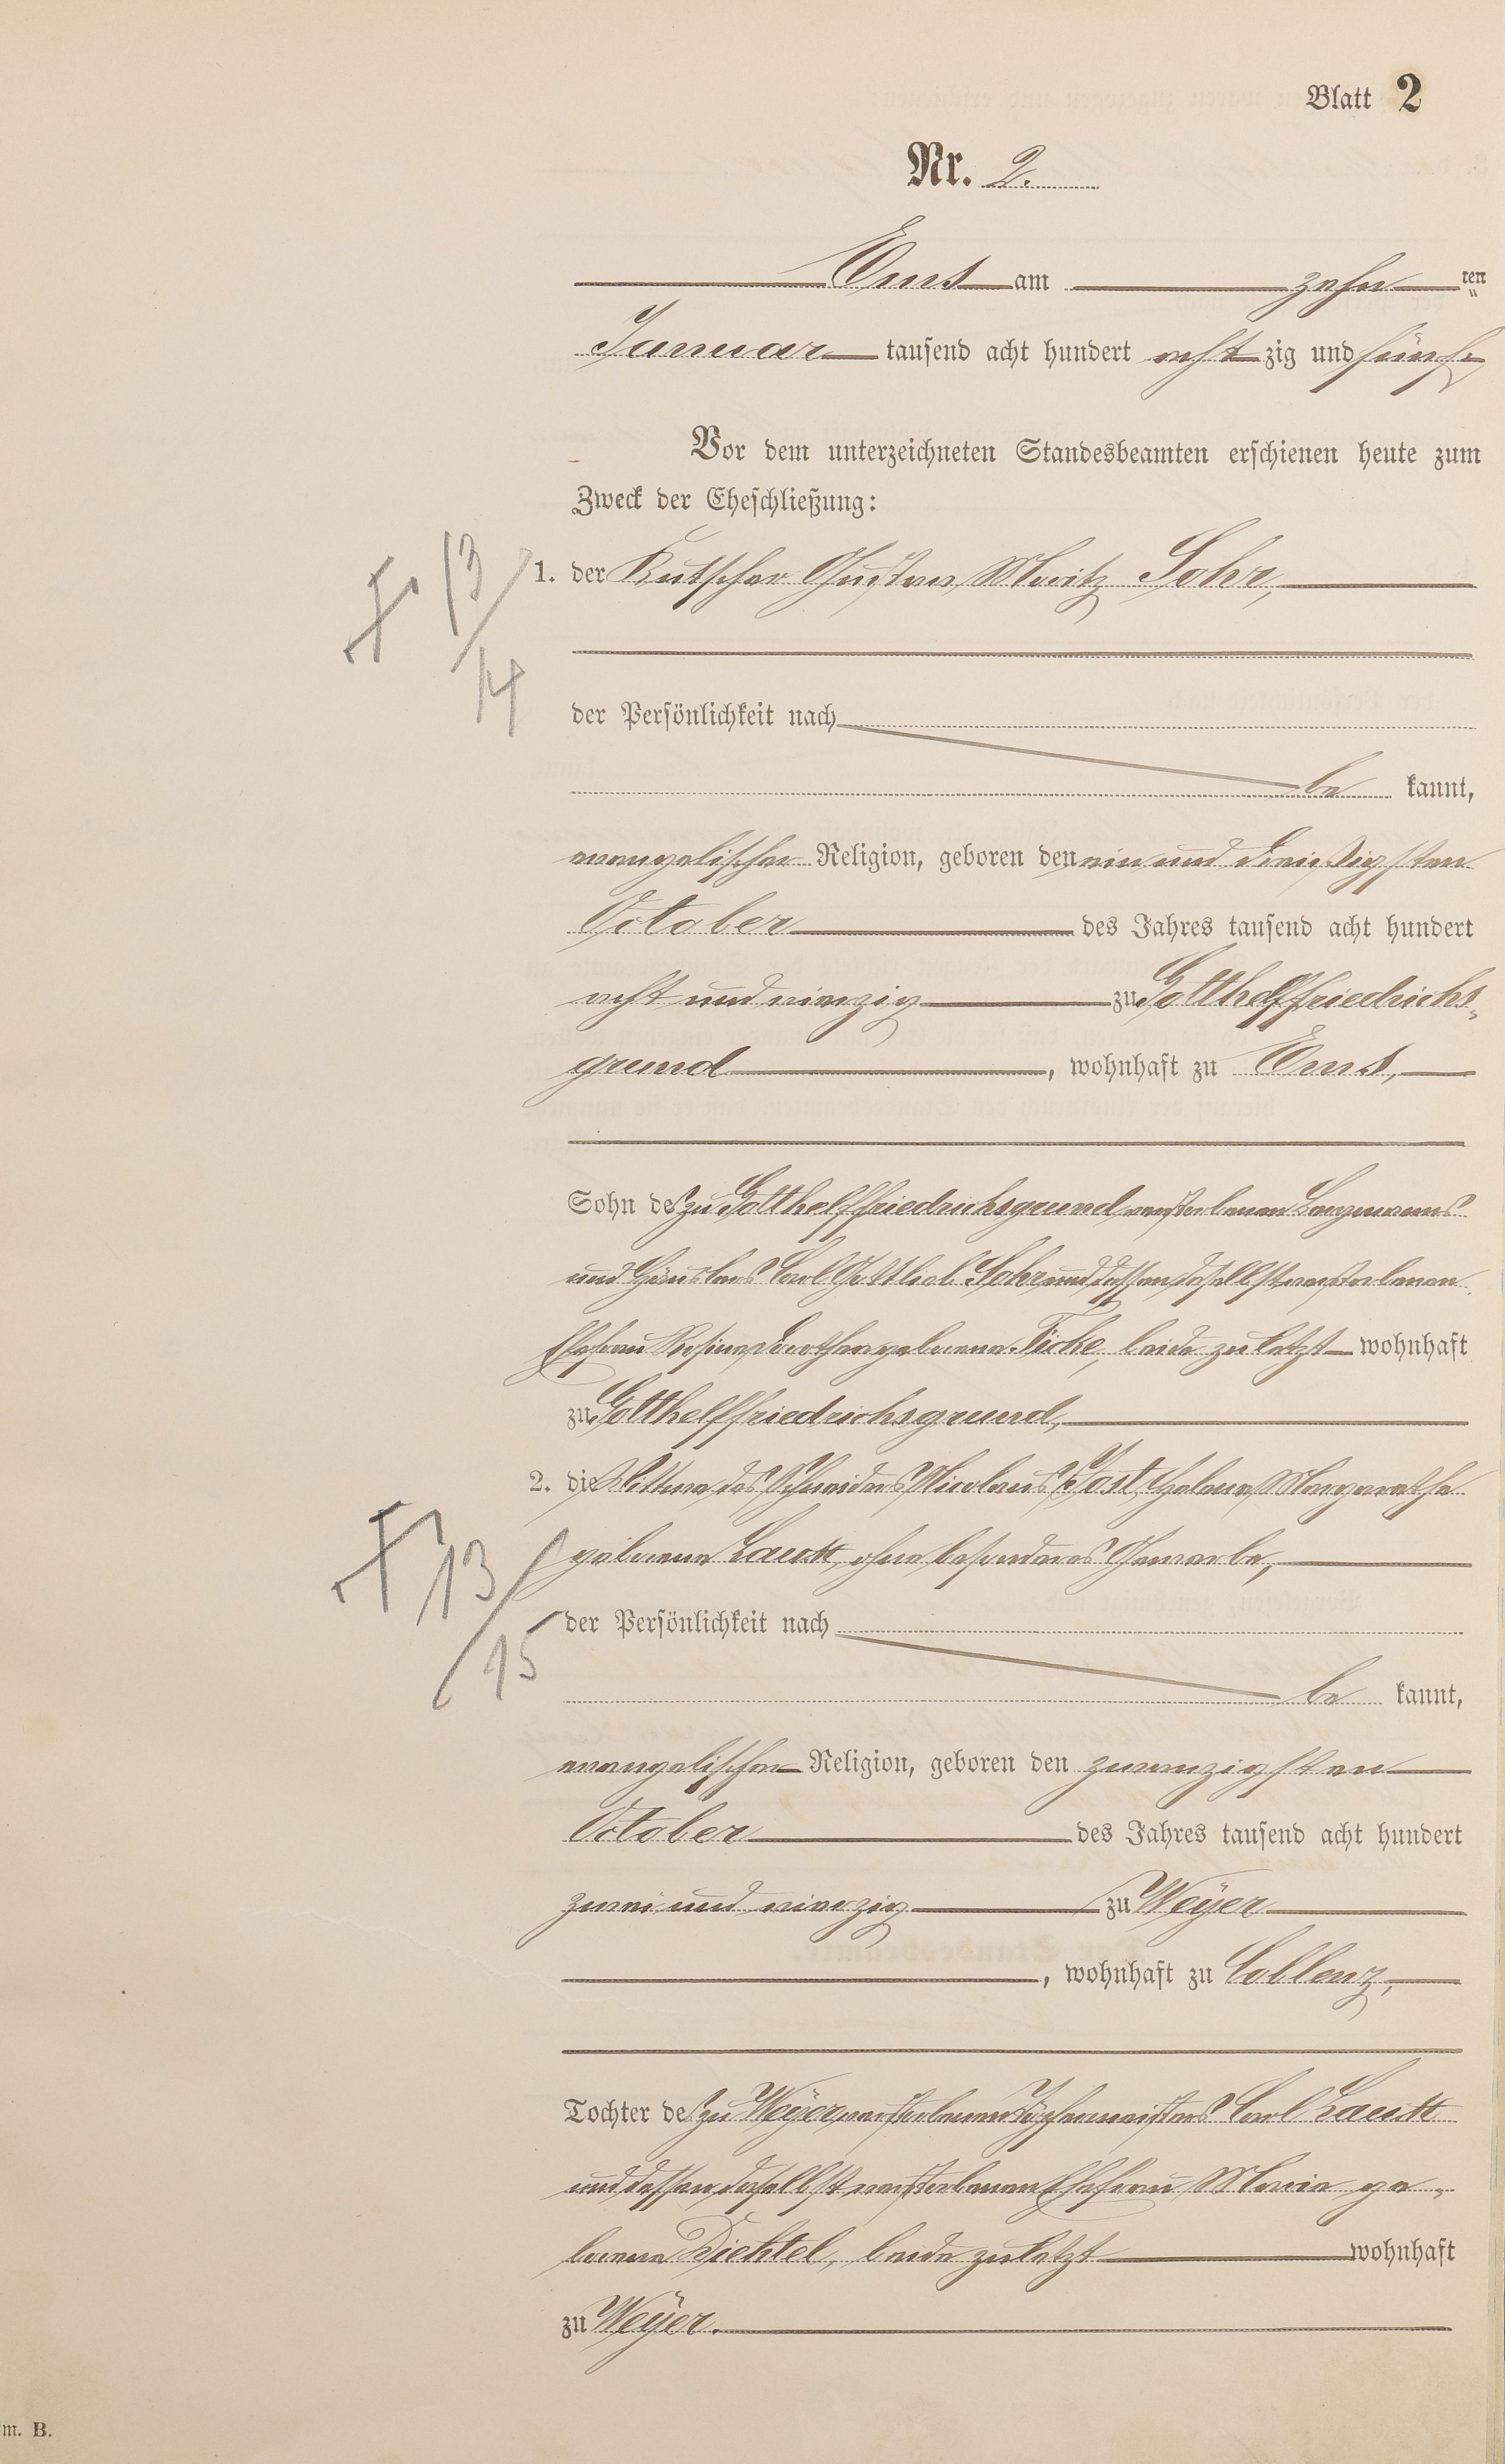 Blatt 2
Nr. 2.
Ems am zehn ten
Januar tausend acht hundert acht zig und fünf.
Vor dem unterzeichneten Standesbeamten erschienen heute zum
Zweck der Eheschließung:
1. der Kutscher Gustav Moritz Sohr,
13/14
der Persönlichkeit nach
be kannt,
evangelischer Religion, geboren den ein und dreißigsten
October des Jahres tausend acht hundert
acht und vierzig zu Gotthelffriedrichs-
grund, wohnhaft zu Ems,
Sohn des zu Gotthelffriedrichsgrund verstorbenen Bergmanns
und Häuslers Carl Gottlieb Sohr und dessen daselbst verstorbenen
Ehefrau Rosine Dorothea geborene Ficke, beide zuletzt wohnhaft
zu Gotthelffriedrichsgrund,
2. die Wittwe des Schneiders Nicolaus Jost, Helene Margarethe
geborene Lauxtt, ohne besonderes Gewerbe,
13/15
der Persönlichkeit nach
be kannt,
evangelischer Religion, geboren den zwanzigsten
October des Jahres tausend acht hundert
zwei und vierzig zu Weÿer
, wohnhaft zu Coblenz,
Tochter des zu Weÿer verstorbenen Carl
und dessen daselbst verstorbenen Ehefrau Maria ge-
borene Diehtel, beide zuletzt wohnhaft
zu Weÿer.
m. B.